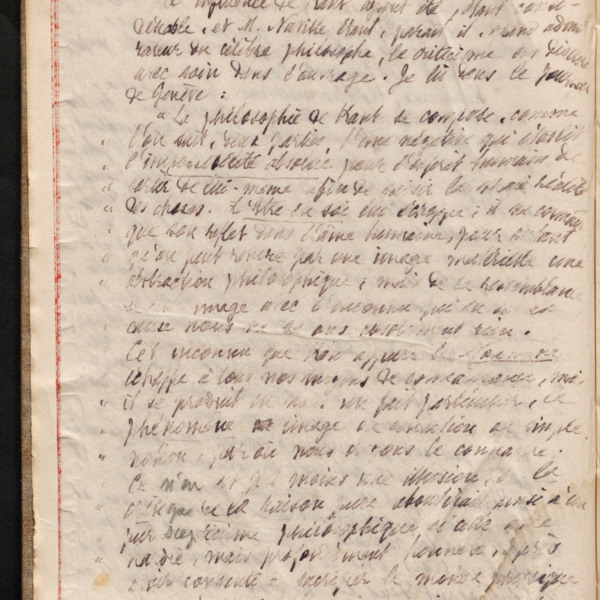 L'influence de Kant ayant été, étant consi-
dérable, et M. Naville étant, paraît il, grand admi-
rateur du célèbre philosophe, le criticisme est
avec soin dans l'ouvrage. Je lis dans le Journal
de Genève :
" La philosophie de Kant se compose, comme
" l'on sait, de deux parties. L'une négative qui établit
" l'impossibilité absolue pour l'esprit humain de
" sortir de lui-même afin de saisir la vraie réalité
" des choses. L'Être en soi lui échappe ; il ne connaît
" que son reflet dans l'âme humaine, pour autant
" qu'on peut rendre par une image matérielle une
" abstraction philosophique ; mais de la ressemblance
image avec l'inconnu qui en est
cause nous ne savons absolument rien.
Cet inconnu que Kant appelle le Noumène
échappe à tous nos moyens de connaissance, mais
" il se produit en nous un fait particulier, ce
" phénomène image ou sensation ou simple
" notion, par où nous croyons le connaître.
Ce n'en est pas moins une illusion, & la
critique de la raison pure aboutirait ainsi à un
" pur scepticisme philosophique
mais profondément honnête, après
" avoir consenti à sacrifier le monde physique